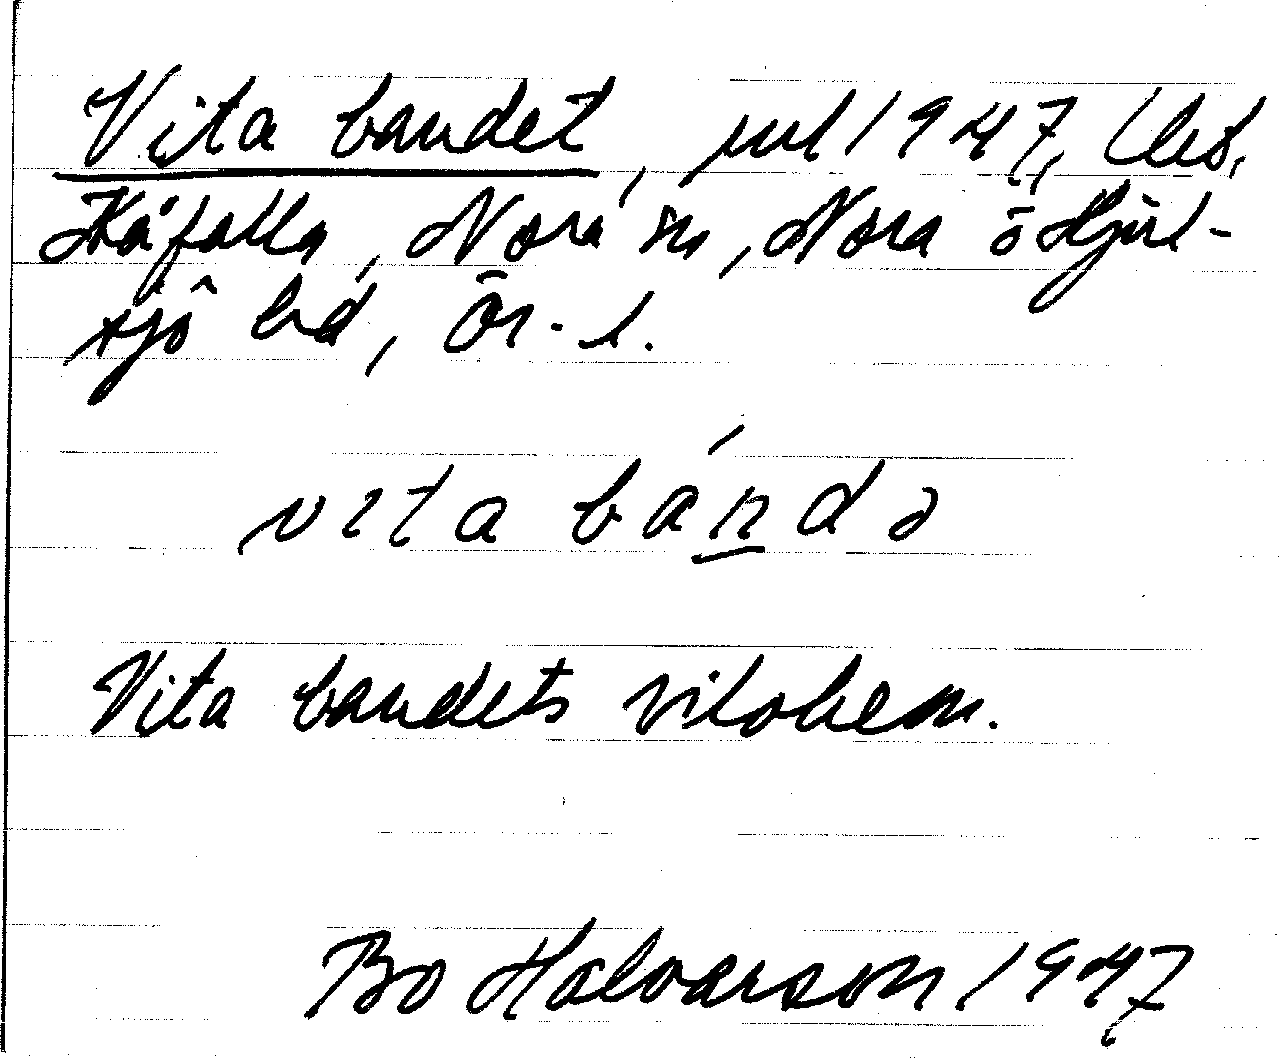 Vita bandet, jul 1947, Ueb.
Kåfalla, Nora sn, Nora o Hjul-
sjö bd, Ör. l.
vɩta bánda
Vita bandets vilohem.
Bo Halvarson 1947